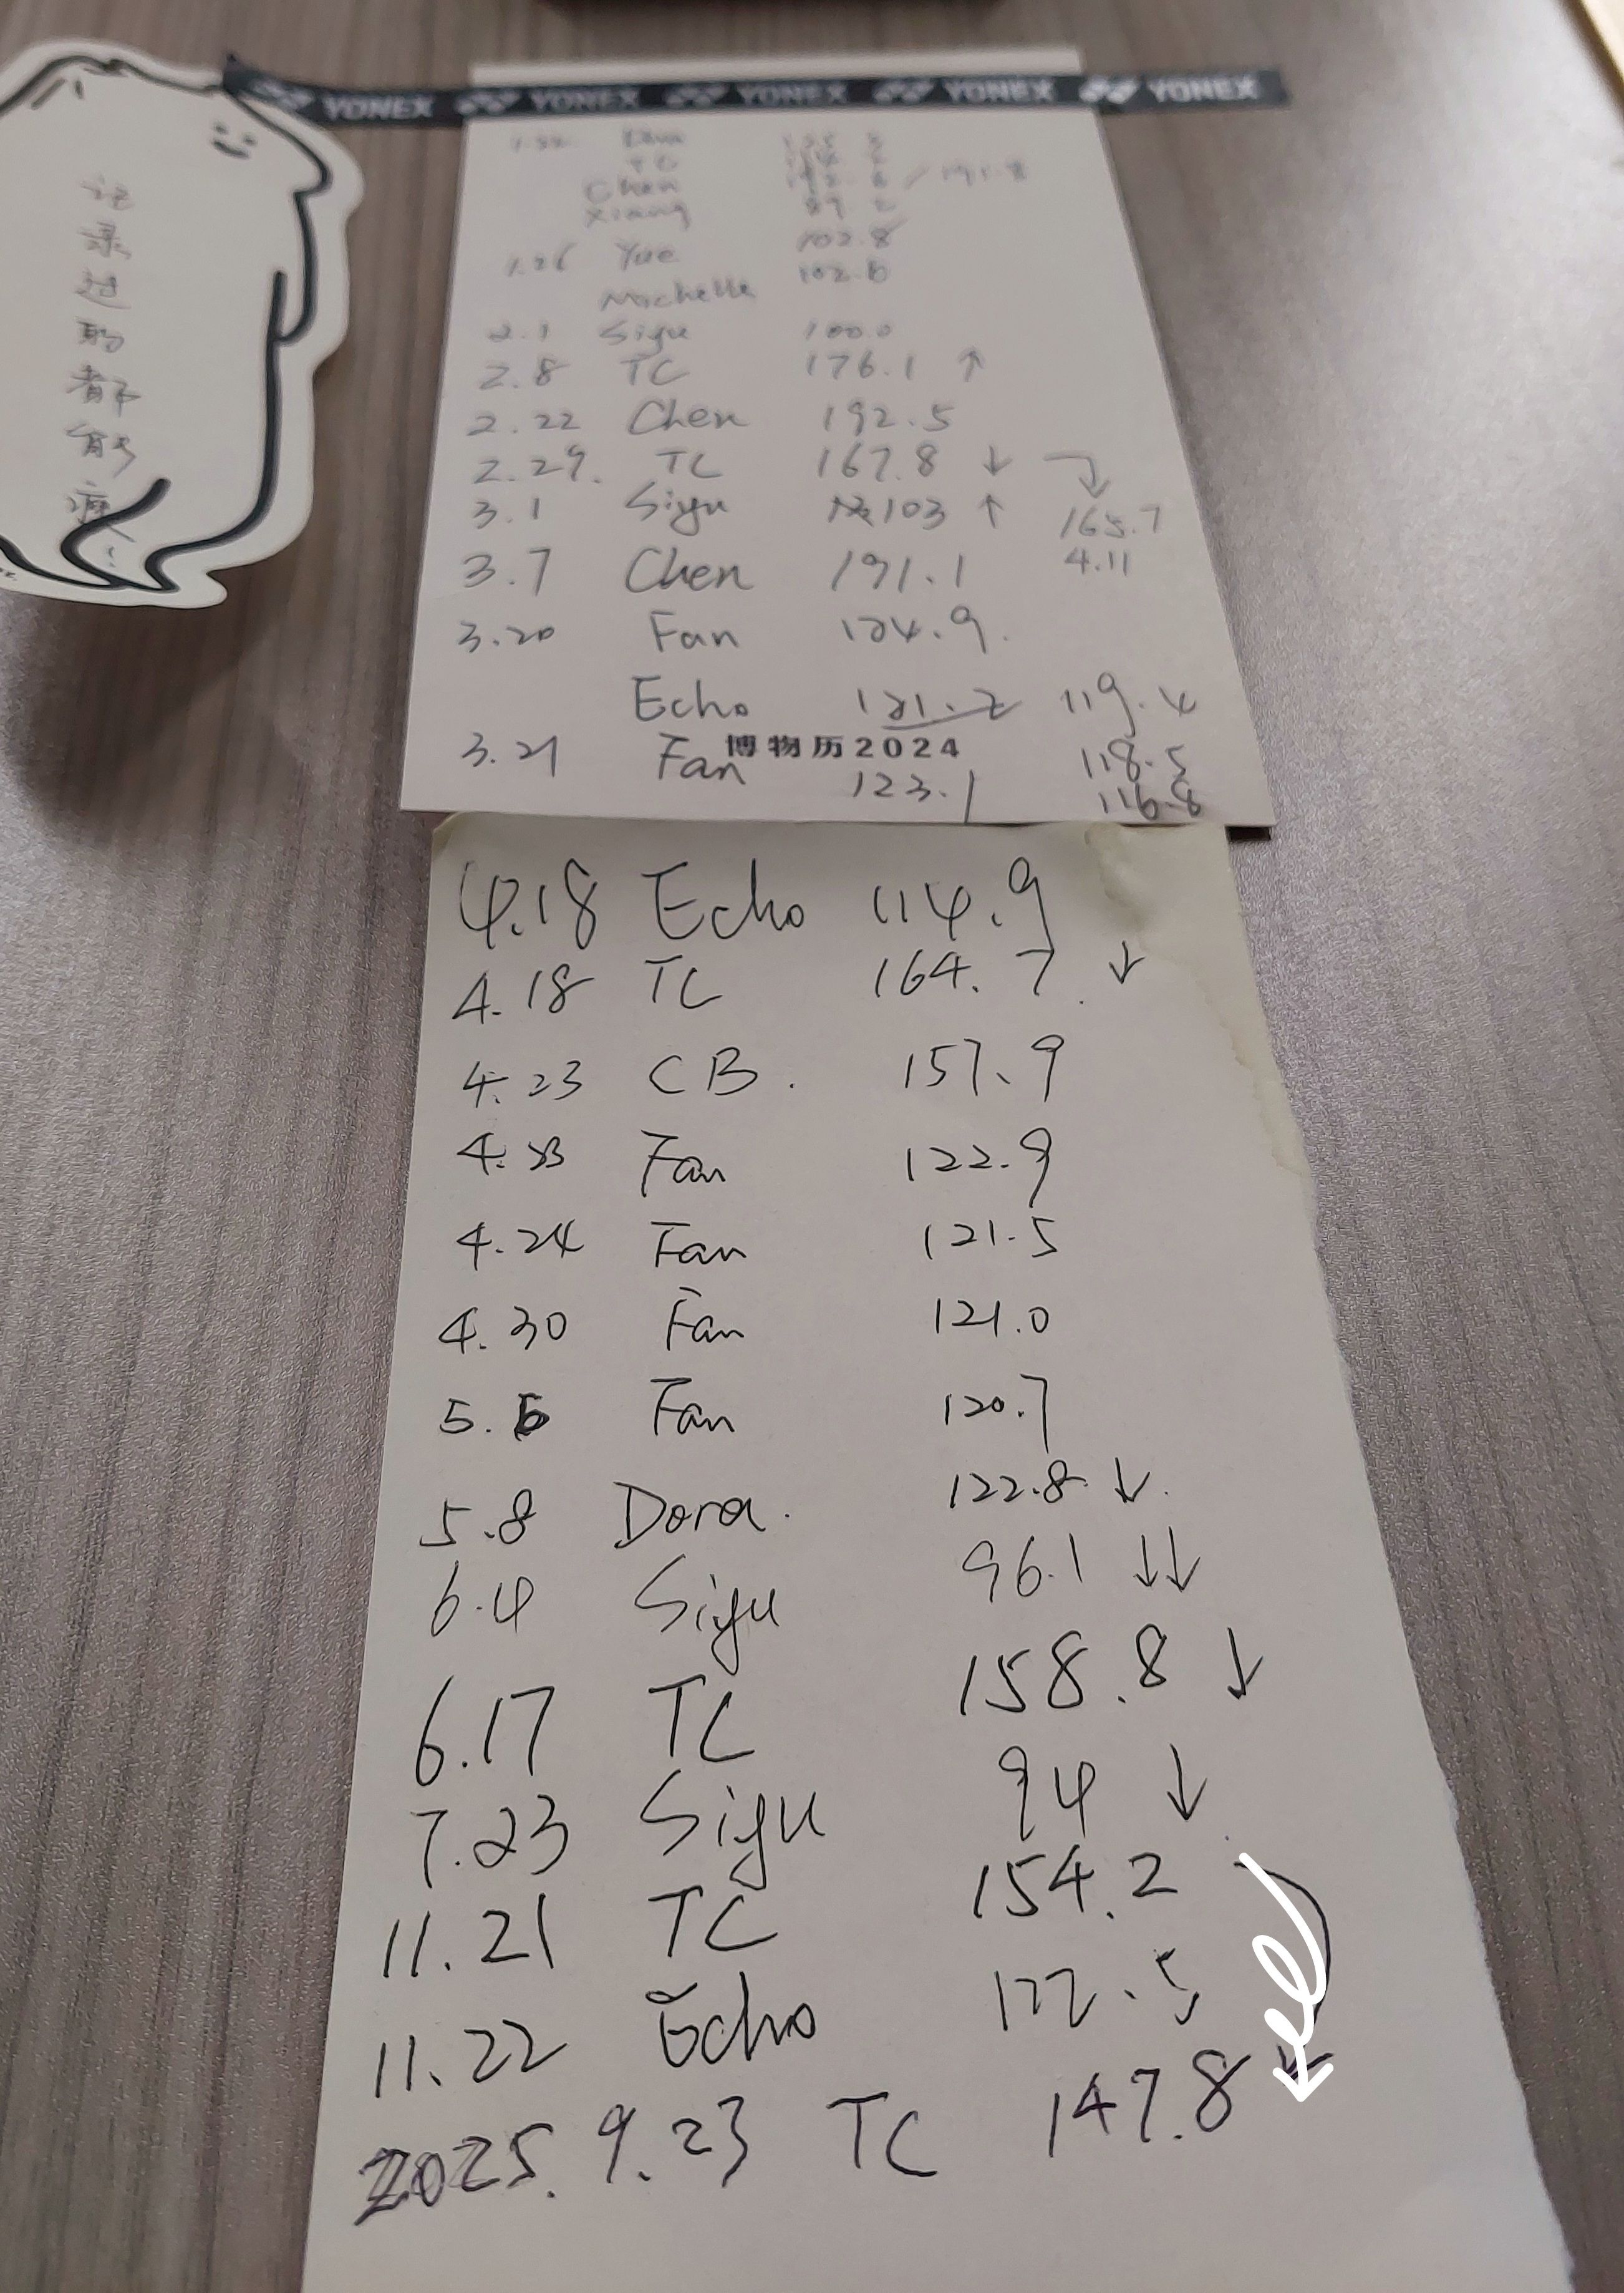 YONEX YONEX YONEX YONEX YONEX
记录过的都能瘦!
TC
Chen 191.8
Xiang 89.2
1.26 Yue 102.8
Machelle 102.6
2.1 Siyu 100.0
2.8 TC 176.1 ↑
2.22 Chen 192.5
2.29. TC 167.8 ↓
3.1 Siyu 103 ↑ 165.7
3.7 Chen 191.1 4.11
3.20 Fan 124.9.
Echo 121.2 119.4
博物历2024
3.21 Fan 123.1 118.5
116.8
4.18 Echo 114.9
4.18 TC 164.7 ↓
4.23 CB. 157.9
4.23 Fan 122.9
4.24 Fan 121.5
4.30 Fan 121.0
5.6 Fan 120.7
5.8 Dora. 122.8 ↓
6.4 Siyu 96.1 ↓↓
6.17 TC 158.8 ↓
7.23 Siyu 94 ↓
11.21 TC 154.2
11.22 Echo 122.5
2025.9.23 TC 147.8